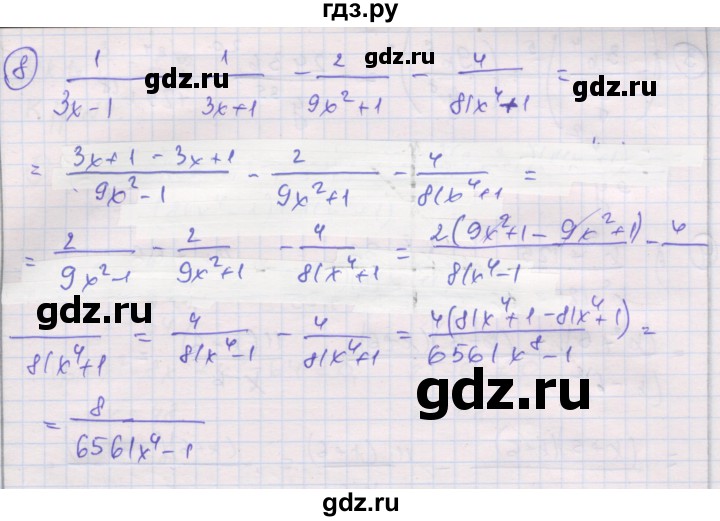 гдз.ру
8 1/(3x-1) 1/(3x+1) - 2/(9x²+1) - 4/(81x⁴+1) =
gdz.ru gdz.ru
= (3x+1-3x+1)/(9x²-1) - 2/(9x²+1) - 4/(81x⁴+1) =
= 2/(9x²-1) - 2/(9x²+1) - 4/(81x⁴+1) = 2(9x²+1-9x²+1)/(81x⁴-1) - 4
gdz.ru
/(81x⁴+1) = 4/(81x⁴-1) - 4/(81x⁴+1) = 4(81x⁴+1-81x⁴+1)/(6561x⁸-1) =
gdz.ru
= 8/(6561x⁴-1)
gdz.ru